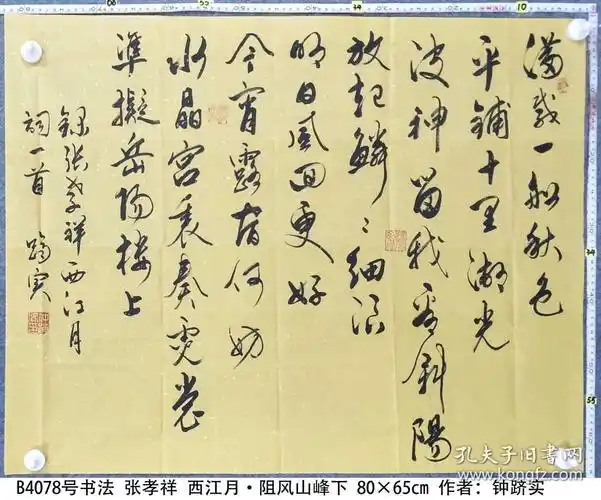 满载一船秋色
平铺十里湖光
波神留我看斜阳
放起鳞々细浪
明日风回更好
今宵露宿何妨
水晶宫里奏霓裳
準擬岳阳楼上
録张孝祥西江月
词一首 跻实
孔夫子旧书网
www.kongfz.com
B4078号书法 张孝祥 西江月·阻风山峰下 80×65cm 作者：钟跻实